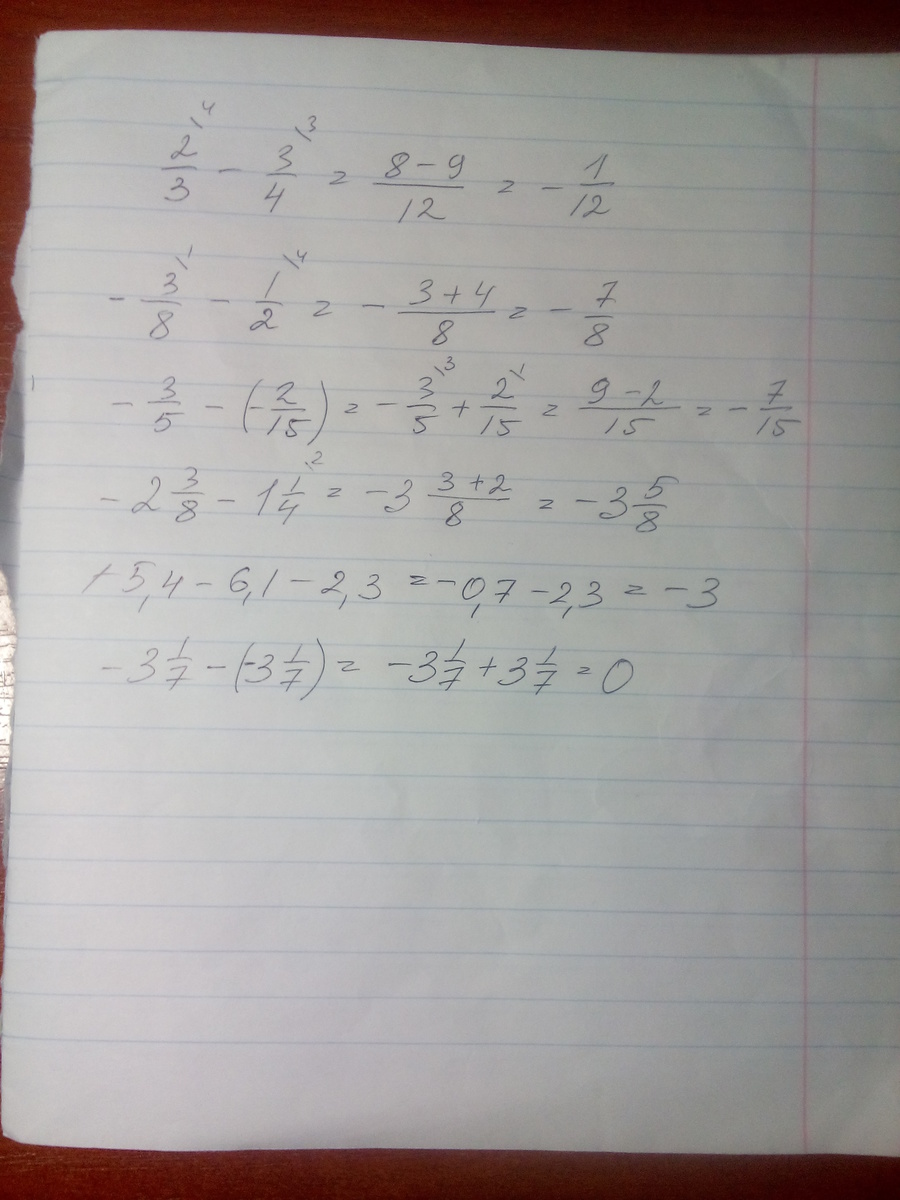 2/3 \4 - 3/4 \3 = (8-9)/12 = -1/12
-3/8 \1 - 1/2 \4 = -(3+4)/8 = -7/8
-3/5 - (-2/15) = -3/5 \3 + 2/15 \1 = (9-2)/15 = -7/15
-2 3/8 - 1 1/4 \2 = -3 (3+2)/8 = -3 5/8
+5,4 - 6,1 - 2,3 = -0,7 - 2,3 = -3
-3 1/7 - (-3 1/7) = -3 1/7 + 3 1/7 = 0